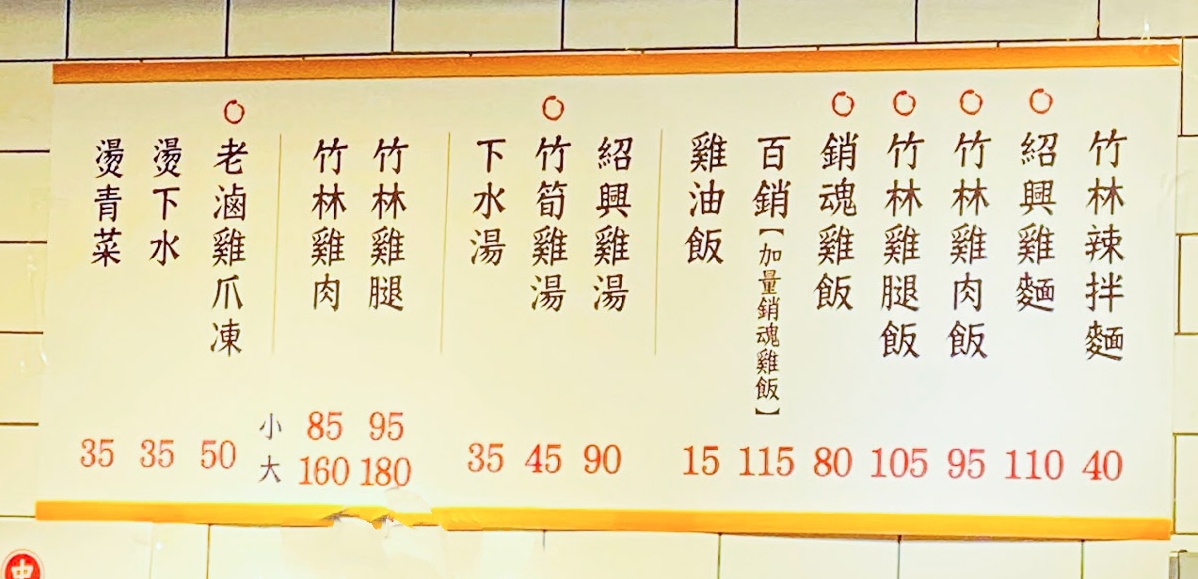 竹林辣拌麵 40
紹興雞麵 110
竹林雞肉飯 95
竹林雞腿飯 105
銷魂雞飯 80
百銷【加量銷魂雞飯】 115
雞油飯 15
紹興雞湯 90
竹筍雞湯 45
下水湯 35
竹林雞腿 95 180
竹林雞肉 85 160
小
大
老滷雞爪凍 50
燙下水 35
燙青菜 35